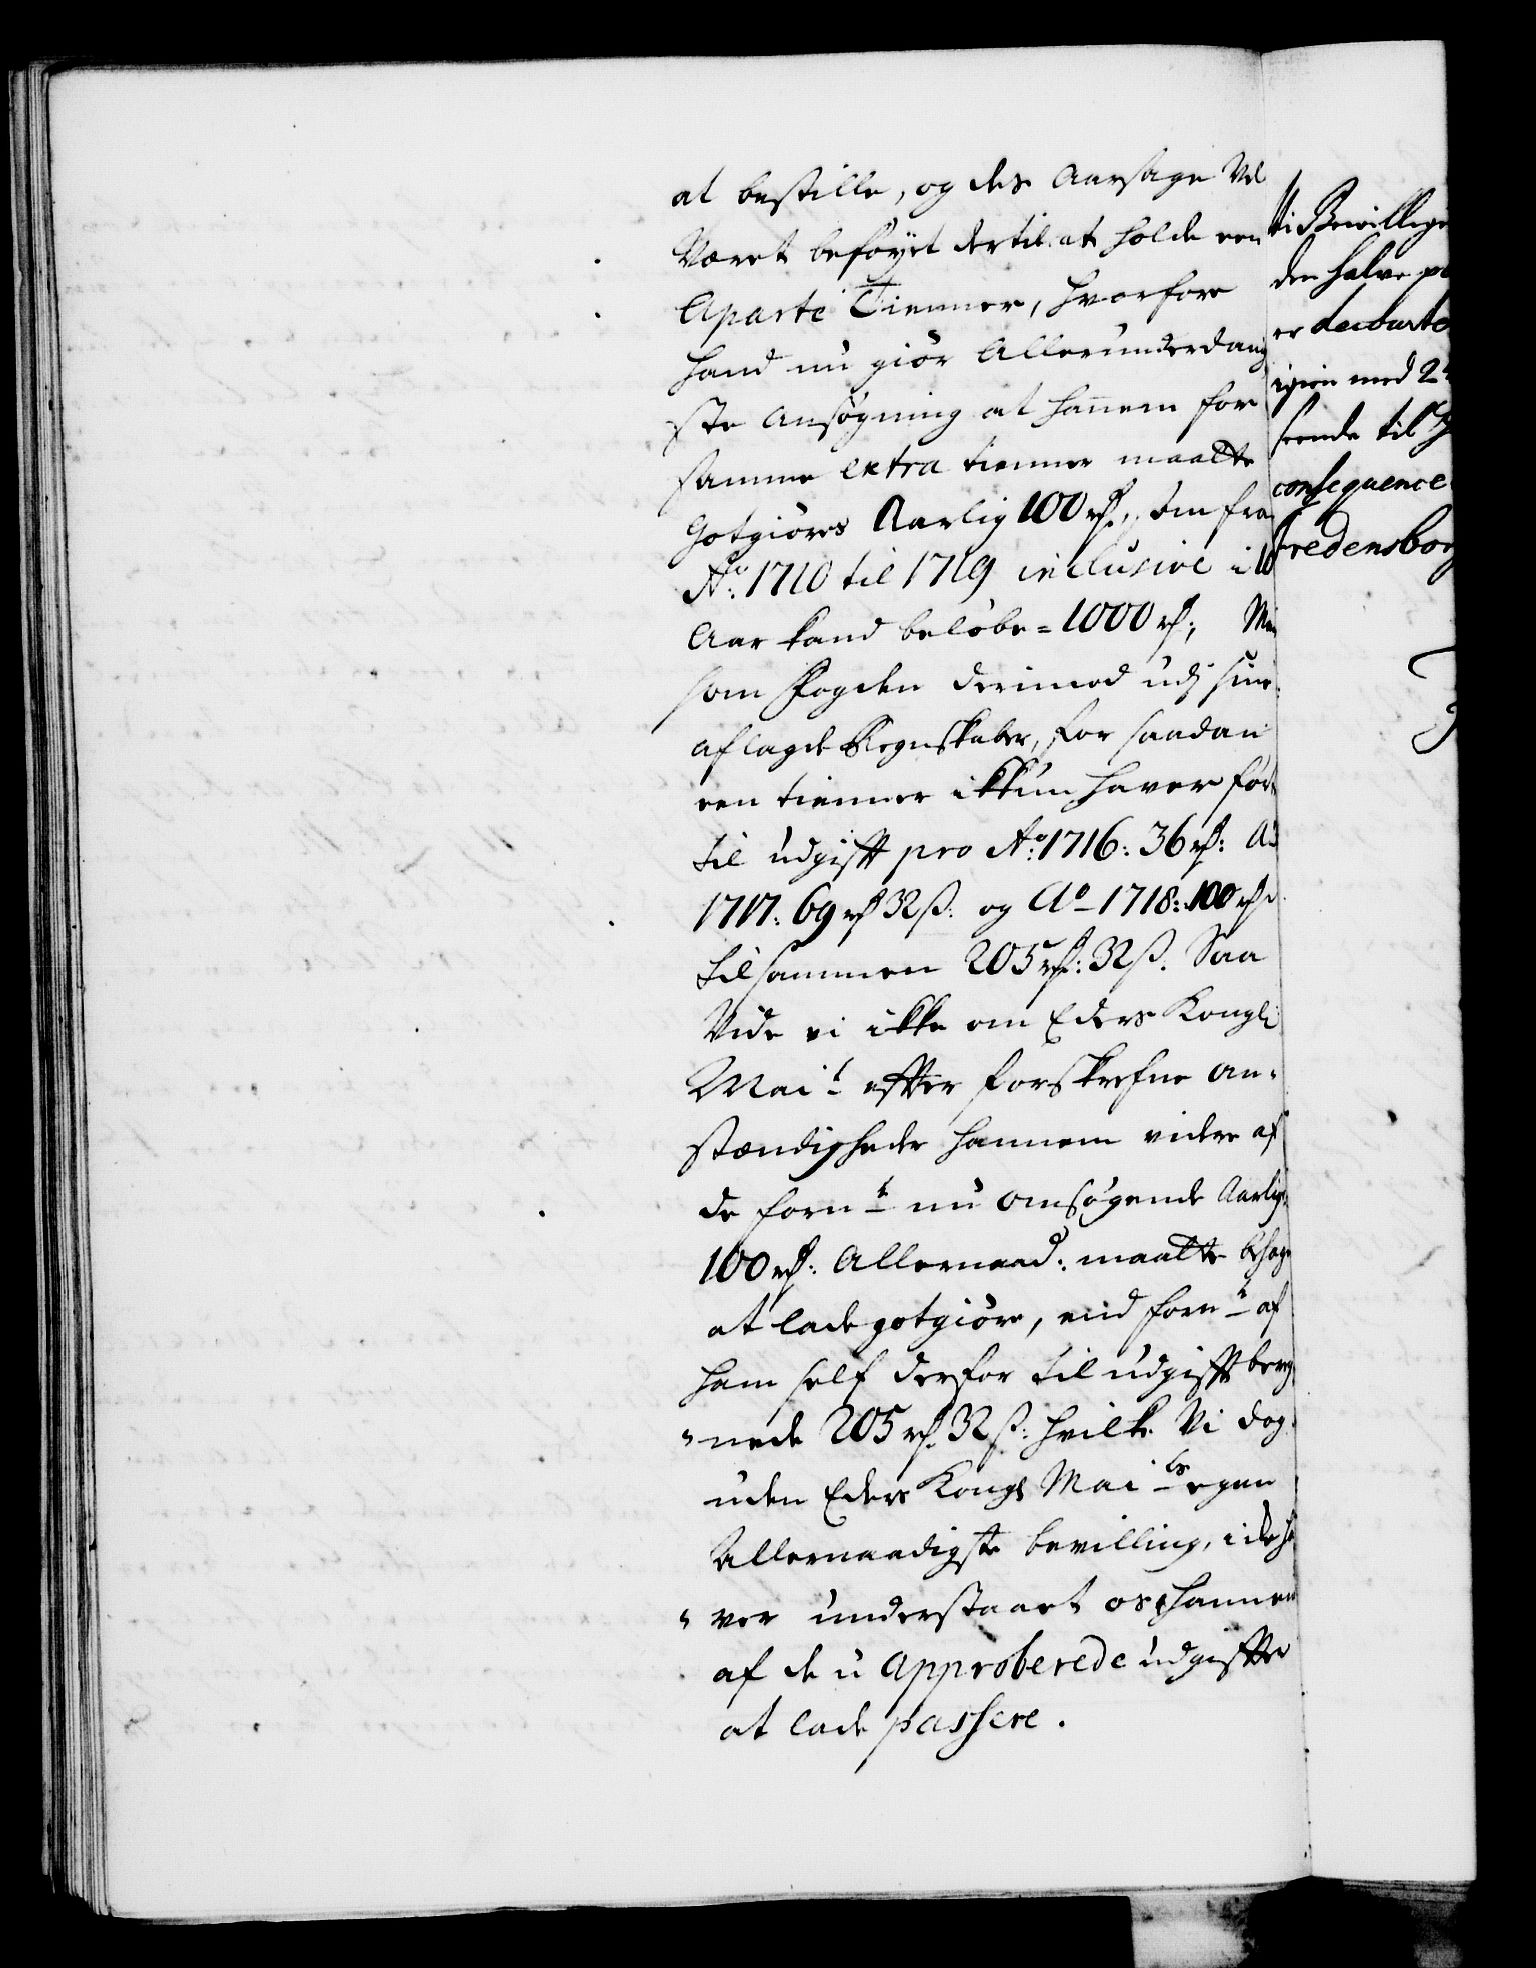 at bestille, og des Aarsage Vel
Været beføyet dertil at holde een
Aparte Tienner, hvorfore
hand nu giør Allerunderdanig
ste Ansøgning at hannem for
samme extra tienner maatte
Gotgiøres Aarlig 100 rd., som fra
Ao: 1710 til 1719 inclusive i 10
Aar kand beløbe = 1000 rd;
som Fogden derimod udj sine
aflagde Regnskaber, for saadan
een tienner ikkun haver ført
til udgifft pro Ao: 1716: 36 rd: Ao
1717: 69 rd 32 ß: og Ao 1718: 100 rd
tilsammen 205 rd: 32 ß. Saa
Vide vi ikke om Eders Kongl:
Mait effter forskrefne om-
stændigheder hannem videre af
de fornt nu omsøgende Aarlig
100 rd: Allernaad: maatte behage
at lade gotgiøre, end fornt af
ham self derfor til udgifft bereg
nede 205 rd. 32 ß: hvilke Vi dog
uden Eders Kongl Maits egen
Allernaadigste bevilling, icke ha
ver understaaet os hannem
af de u Approberede udgiffter
at lade passere.
ti Bevillige
den halve
er decourte
igien med
seende til
consequence
Fredensborg